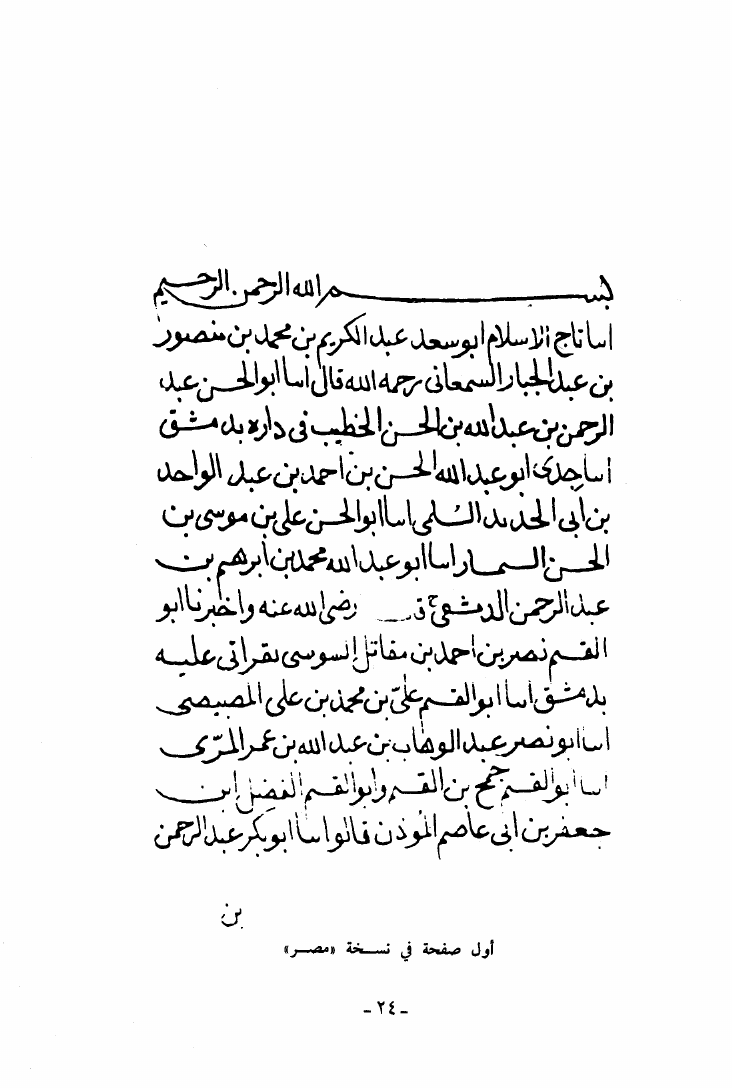 بسم الله الرحمن الرحيم
انبا تاج الاسلام ابو سعد عبد الكريم بن محمد بن منصور
بن عبد الجبار السمعاني رحمه الله قال انبا ابو الحسن عبد
الرحمن بن عبد الله بن الحسن الخطيب في داره بدمشق
انبا جدي ابو عبد الله الحسن بن احمد بن عبد الواحد
بن ابي الحديد السلمي انبا ابو الحسن علي بن موسى بن
الحسن السمسار انبا ابو عبد الله محمد بن ابرهيم بن
عبد الرحمن الدمشقي رضي الله عنه واخبرنا ابو
القسم نصر بن احمد بن مقاتل السوسي بقراتي عليه
بدمشق انبا ابو القسم علي بن محمد بن علي المصيصي
انبا ابو نصر عبد الوهاب بن عبد الله بن عمر المري
انبا ابو القسم جمح بن القسم وابو القسم الفضل ابن
جعفر بن ابي عاصم المؤذن قالوا انبا ابو بكر عبد الرحمن
بن
أول صفحة في نسخة «مصر»
- ٢٤ -